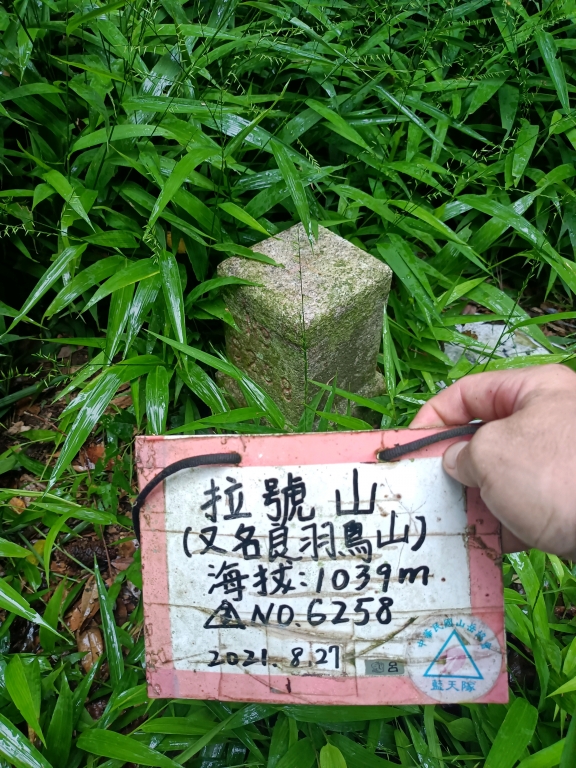 拉號山
(又名良羽鳥山)
海拔:1039m.
NO.6258
2021.8.27
藍天隊